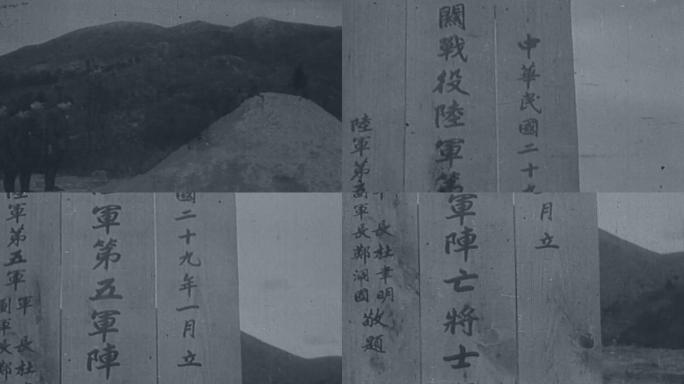 中華民國二十九
關戰役陸軍第
陸軍第
國二十九年一月立
軍第五軍陣
陸軍第五軍軍長杜
副軍長鄭
月立
軍陣亡將士
長杜聿明
軍長鄭洞國
敬題